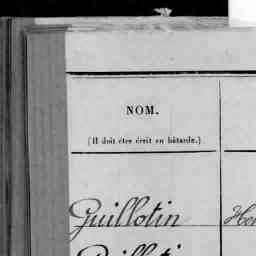 NOM.
(Il doit être écrit en bâtarde.)
Guillotin